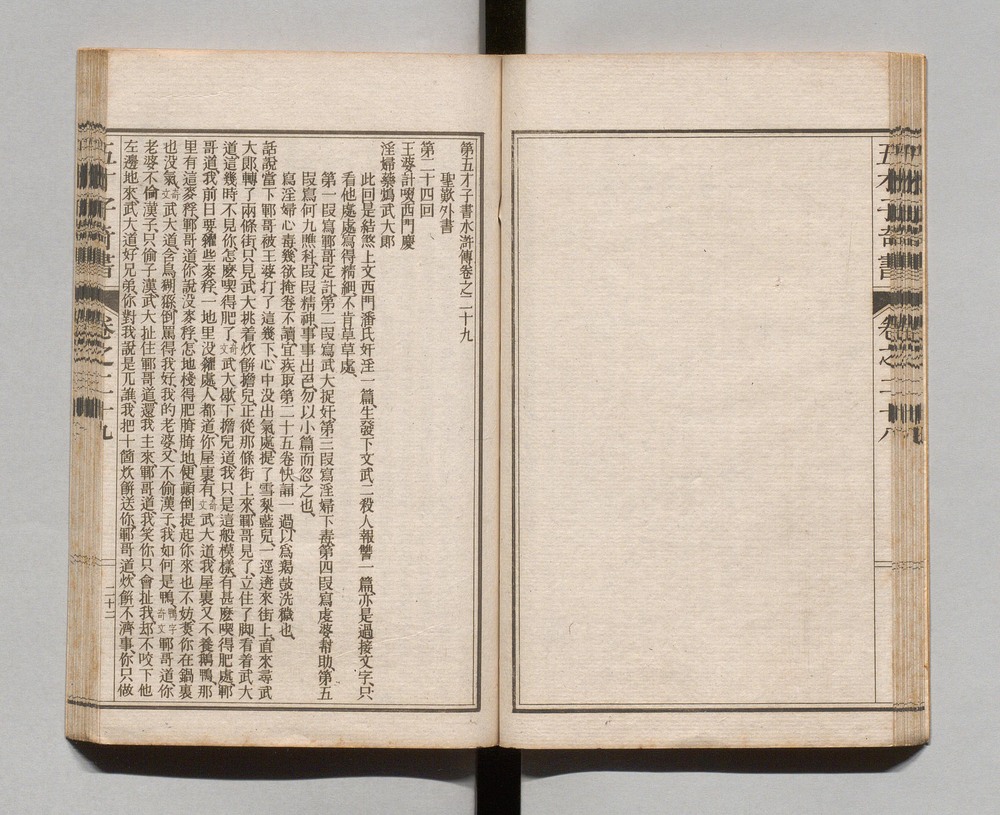 第五才子書水滸傳卷之二十九
聖歎外書
第二十四回
王婆計啜西門慶
淫婦藥鴆武大郎
此回是結煞上文西門潘氏奸淫一篇、生發下文武二殺人報讐一篇、亦是過接文字、只
看他處處寫得精細、不肯草草處、
第一段寫鄆哥定計、第二段寫武大捉奸、第三段寫淫婦下毒、第四段寫虔婆幇助、第五
段寫何九瞧科、段段精神、事事出色、勿以小篇而忽之也、
寫淫婦心毒、幾欲掩卷不讀、宜疾取第二十五卷快誦一過、以為羯鼓洗穢也、
話說當下鄆哥被王婆打了這幾下、心中没出氣處、提了雪梨籃兒、一逕逩來街上、直來尋武
大郎、轉了兩條街、只見武大挑着炊餅擔兒、正從那條街上來、鄆哥見了、立住了脚、看着武大
道、這幾時不見你、怎麽喫得肥了、奇文武大歇下擔兒道、我只是這般模樣、有甚麽喫得肥處、鄆
哥道、我前日要糴些麥稃、一地里没糴處、人都道你屋裏有、奇文武大道、我屋裏又不養鵝鴨、那
里有這麥稃、鄆哥道、你說没麥稃、怎地棧得肥𦞂𦞂地、便顚倒提起你來也不妨、煑你在鍋裏
也没氣、奇文武大道、含鳥猢猻、倒罵得我好、我的老婆又不偷漢子、我如何是鴨、鴨字奇文鄆哥道、你
老婆不偷漢子、只偷子漢、武大扯住鄆哥道、還我主來、鄆哥道、我笑你只會扯我、却不咬下他
左邊地來、武大道、好兄弟、你對我說是兀誰、我把十箇炊餅送你、鄆哥道、炊餅不濟事、你只做
五才子奇書
卷之二十九
二十二
五才子奇書
卷之二十八